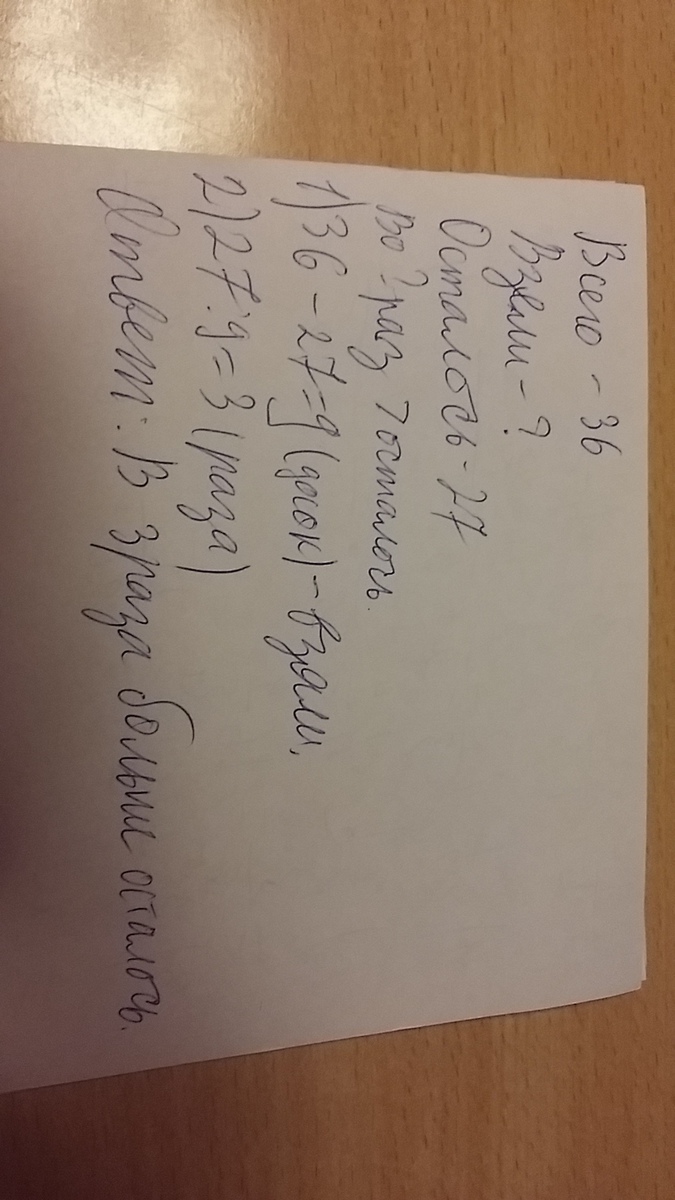 Всего - 36
Взяли - ?
Осталось - 27
Во ? раз > осталось.
1) 36 - 27 = 9 (досок) - взяли.
2) 27 : 9 = 3 (раза)
Ответ: В 3 раза больше осталось.